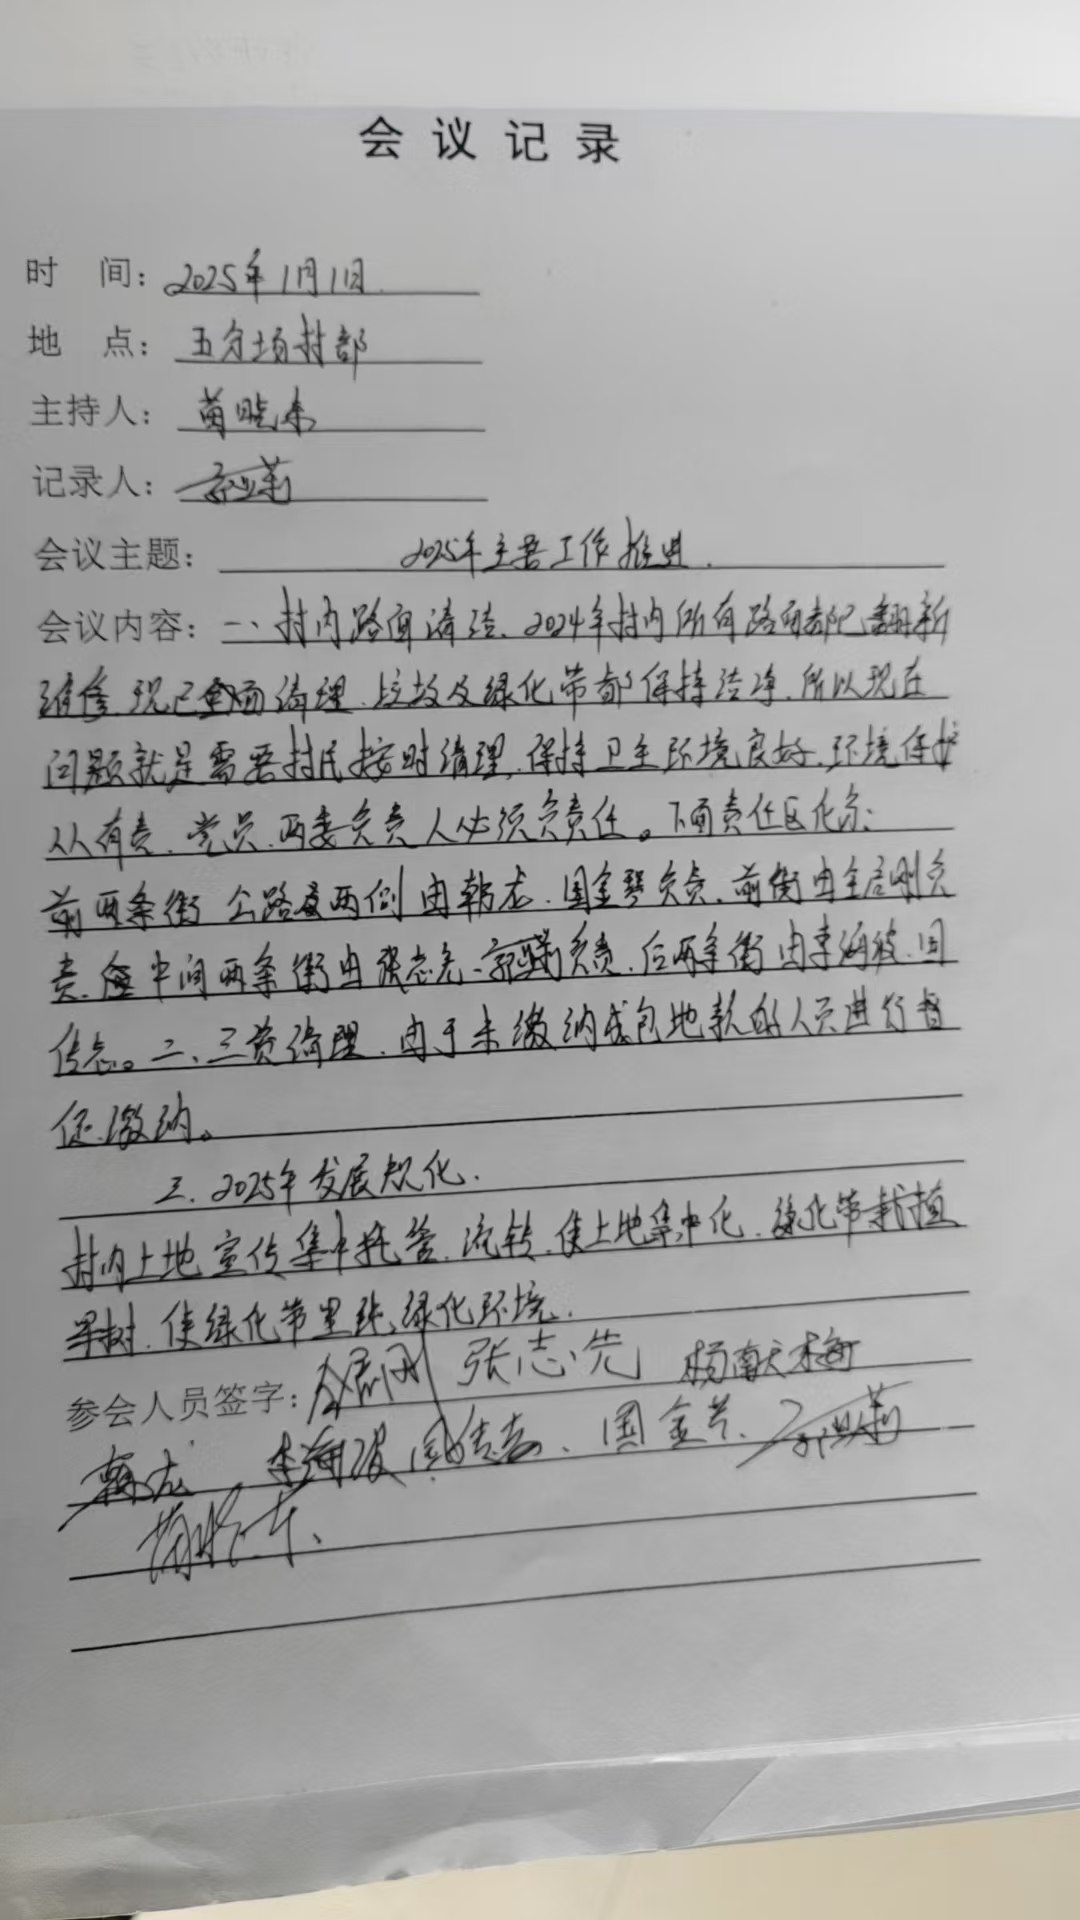 会议记录
时 间：2025年1月1日
地 点：五分场村部
主持人：
记录人：
会议主题：2025年主要工作推进.
会议内容：一、村内路面清洁、2024年村内所有路面都已翻新
维修、现已全面清理、垃圾及绿化带都保持洁净、所以现在
问题就是需要村民按时清理、保持卫生环境良好、环境保护
人人有责、党员、两委负责人必须负责任。下面责任区化分：
前两条街 公路及两侧由韩龙、国金琴负责、前街由全启刚负
责、中间两条街由张志先、负责、后两条街由李海波、国
传志。二、三资清理、由于未缴纳承包地款的人员进行督
促缴纳。
三、2025年发展规化.
村内土地宣传集中托管、流转、使土地集中化、绿化带栽植
果树、使绿化带里、绿化环境.
参会人员签字： 张志先 杨献梅
韩龙 李海波 国传志、国金